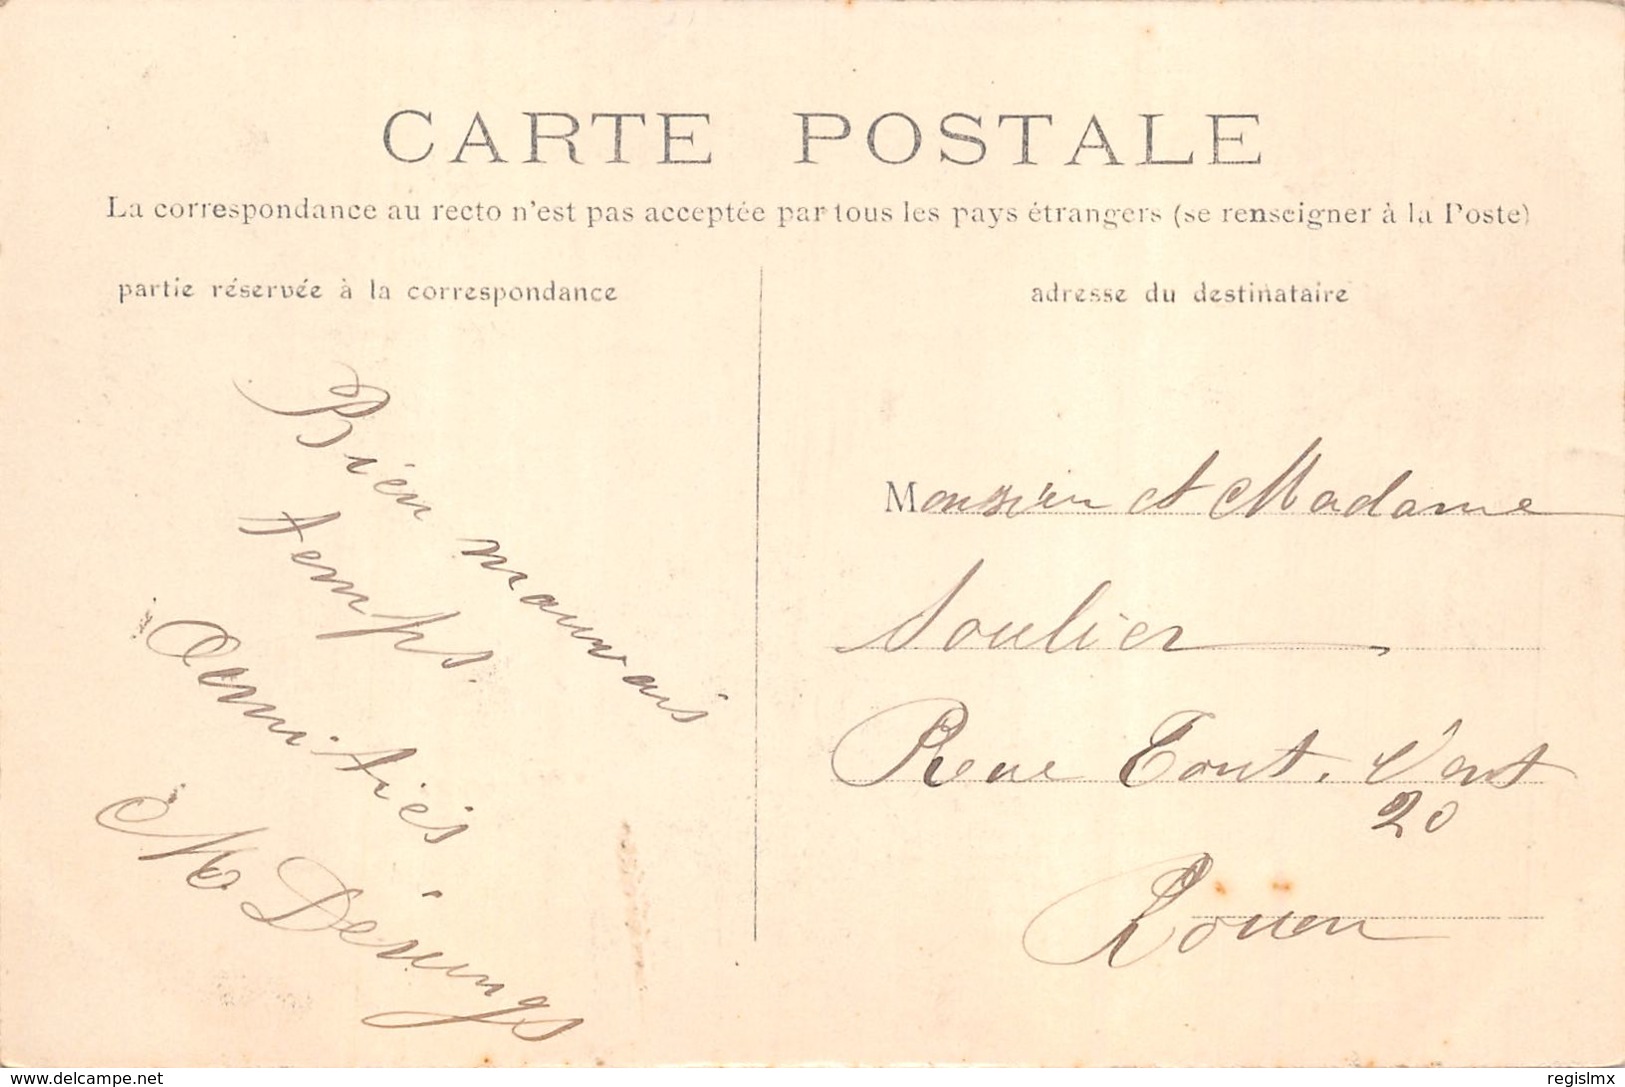 CARTE POSTALE
La correspondance au recto n'est pas acceptée par tous les pays étrangers (se renseigner à la Poste)
partie réservée à la correspondance
adresse du destinataire
Bien mauvais
temps.
Amitiés
Monsieur et Madame
Soulier
Rue Tout. Vent
20
Rouen
www.delcampe.net
regislmx